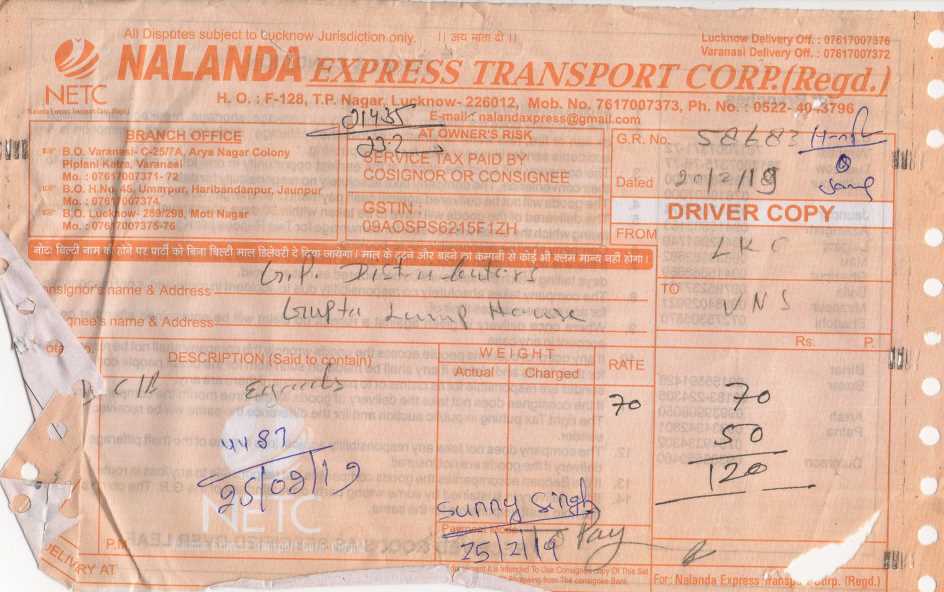 All Disputes subject to Lucknow Jurisdiction only. || जय माता दी ||
Lucknow Delivery Off. : 07617007376
Varanasi Delivery Off. : 07617007372
NALANDA EXPRESS TRANSPORT CORP.(Regd.)
NETC
H. O. : F-128, T.P. Nagar, Lucknow- 226012, Mob. No. 7617007373, Ph. No. : 0522- 4043796
E-mail : nalandaxpress@gmail.com
21435
23-2
BRANCH OFFICE
B.O. Varanasi- C-25/7A, Arya Nagar Colony
Piplani Katra, Varanasi
Mo. : 07617007371- 72
B.O. H.No. 45, Umarpur, Haribandanpur, Jaunpur
Mo. : 07617007374
B.O. Lucknow- 289/298, Moti Nagar
Mo. : 07617007375-76
AT OWNER'S RISK
SERVICE TAX PAID BY
COSIGNOR OR CONSIGNEE
GSTIN :
09AOSPS6215F1ZH
G.R. No. 58683
Dated 20/2/19
DRIVER COPY
FROM LKO
TO VNS
नोट: बिल्टी नाम की होने पर पार्टी को बिना बिल्टी माल डिलेवरी दे दिया जायेगा। माल के टूटने और बहने का कम्पनी से कोई भी क्लेम मान्य नहीं होगा।
onsignor's name & Address G.P. Distributors
gnee's name & Address Gupta Lamp House
Rs. P.
DESCRIPTION (Said to contain)
WEIGHT
Actual Charged
RATE
70
70
50
120
4487
25/02/19
NETC
Sunny Singh
25/2/19
Pay
P.M
DELIVERY AT
For: Nalanda Express Transport Corp. (Regd.)